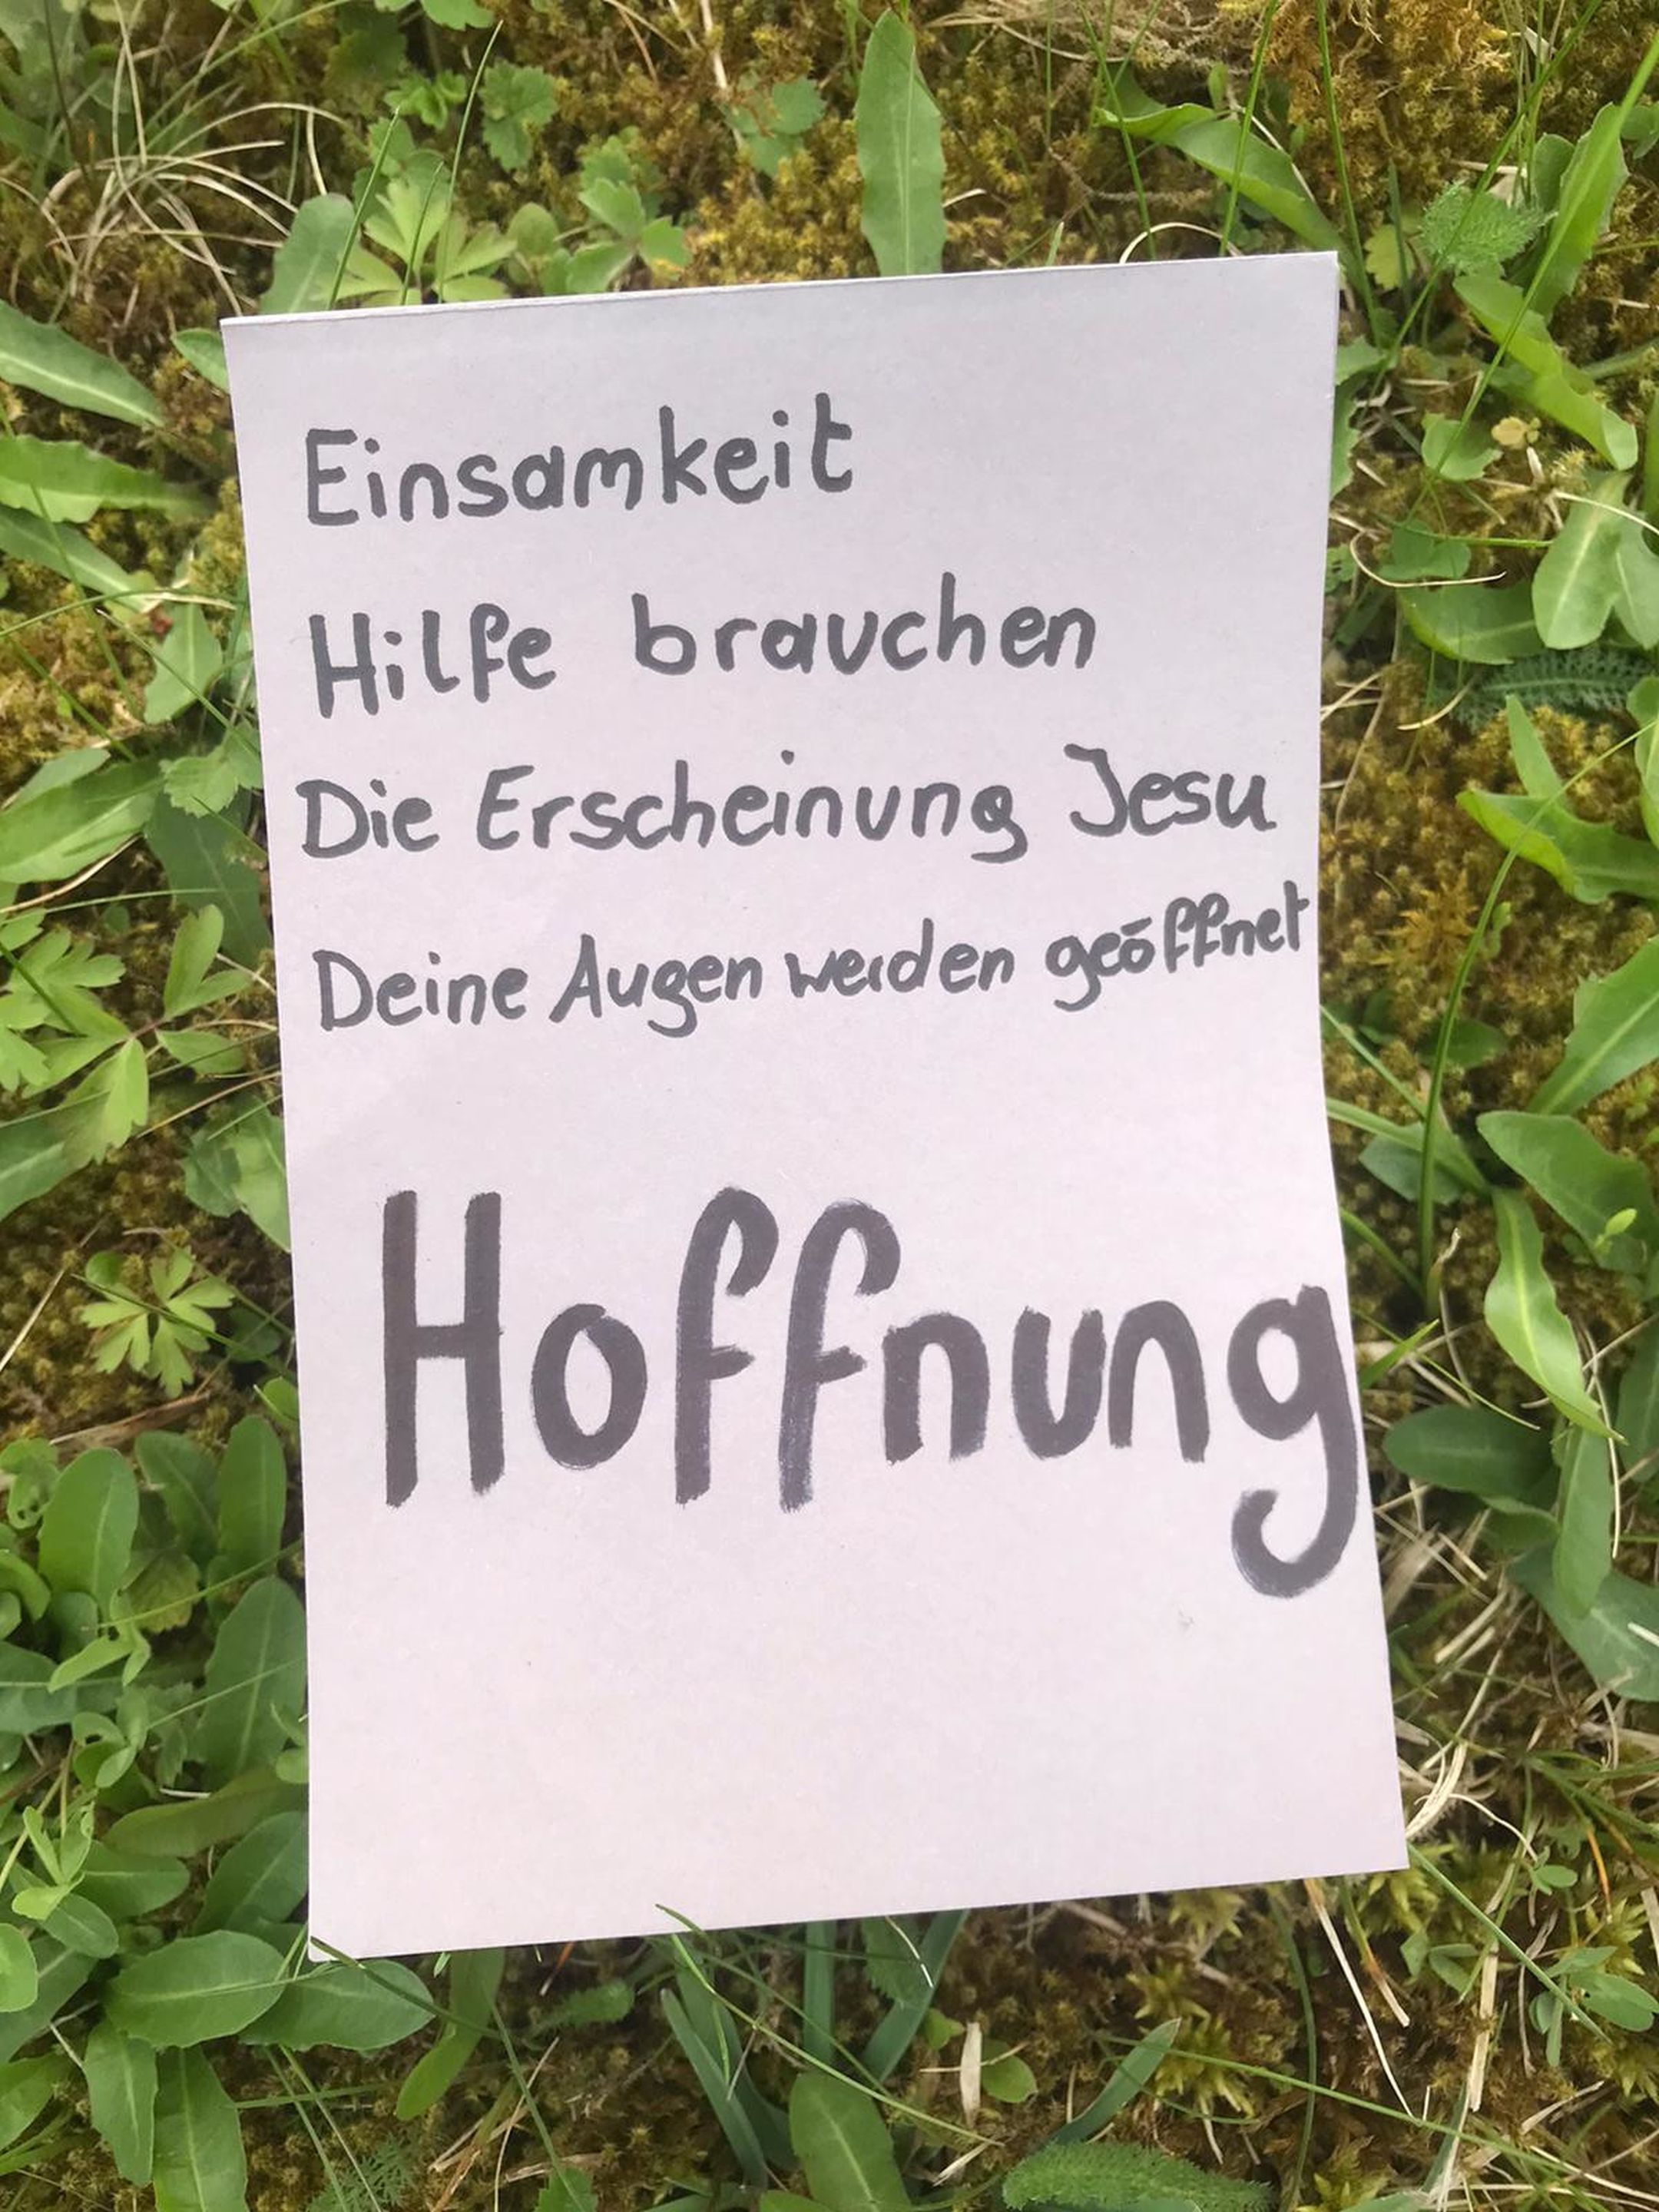 Einsamkeit
Hilfe brauchen
Die Erscheinung Jesu
Deine Augen werden geöffnet
Hoffnung